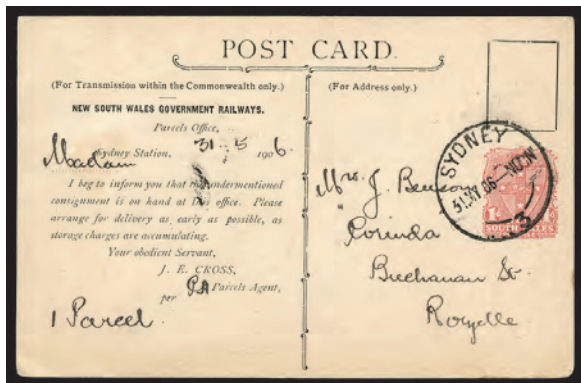 POST CARD.
(For Transmission within the Commonwealth only.)
NEW SOUTH WALES GOVERNMENT RAILWAYS.
Parcels Office,
Sydney Station, 31-5 1906.
Madam
I beg to inform you that the undermentioned
consignment is on hand at this office. Please
arrange for delivery as early as possible, as
storage charges are accumulating.
Your obedient Servant,
J. E. CROSS,
per PA Parcels Agent,
1 Parcel.
(For Address only.)
Mrs. J. Benson
"Corinda
Buchanan St.
Rozelle
SYDNEY
31.MY.06-NOON
3
SOUTH WALES